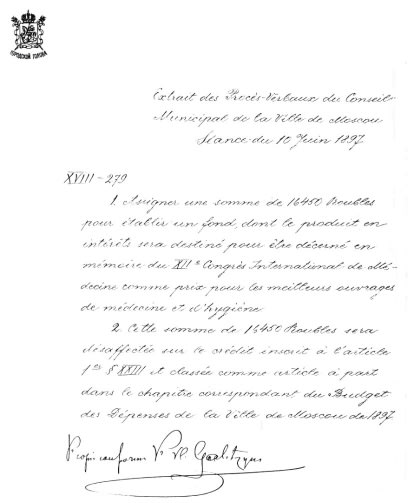 ГОРОДСКОЙ ГОЛОВА
Extrait des Procès-Verbaux du Conseil
Municipal de la Ville de Moscou
Séance du 10 Juin 1897
XVIII-279
1. Assigner une somme de 16450 Roubles
pour établir un fond, dont le produit en
intérêts sera destiné pour être décerné en
mémoire du XIIe Congrès International de Mé-
decine comme prix pour les meilleurs ouvrages
de médecine et d'hygiène
2. Cette somme de 16450 Roubles sera
désaffectée sur le crédit inscrit à l'article
1er § XXIII et classée comme article à part
dans le chapitre correspondant du Budget
des Dépenses de la Ville de Moscou de 1897
Copie conforme Pr Wl Galitzyne